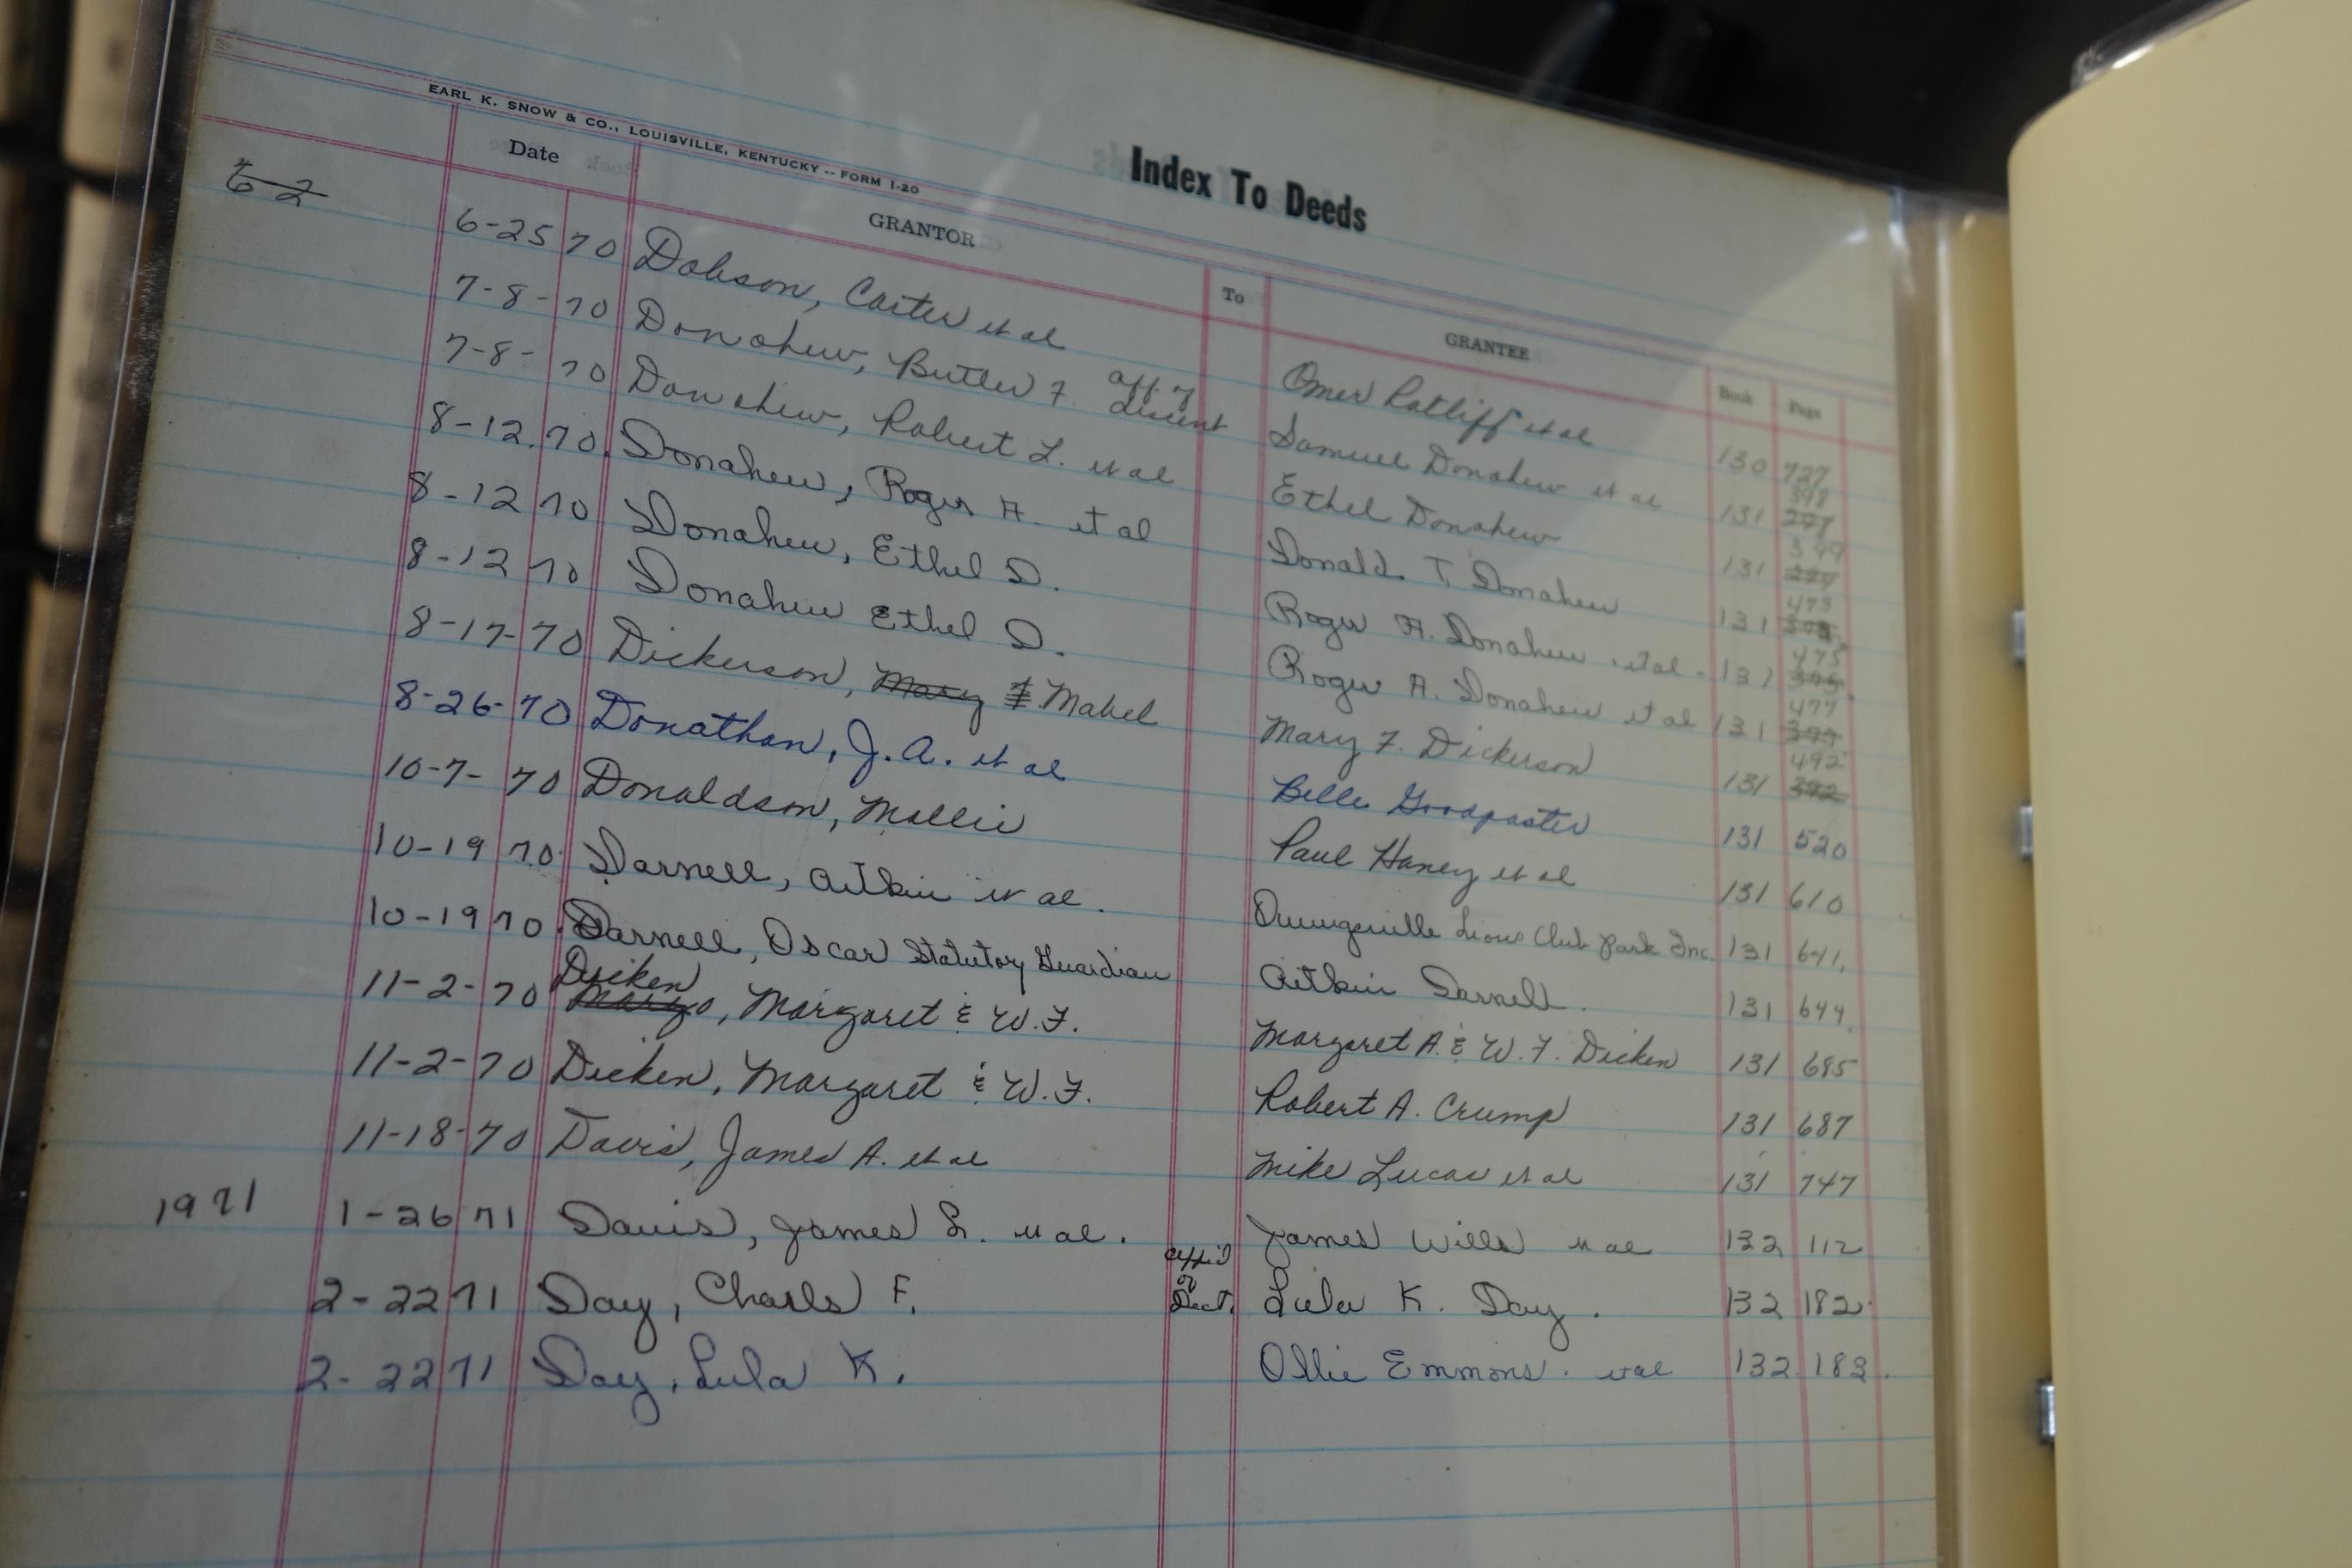 EARL K. SNOW & CO., LOUISVILLE, KENTUCKY -- FORM I-20
Index To Deeds
Date GRANTOR To GRANTEE Book Page
6-2
6-25 70 Dobson, Carter et al Omer Ratliff et al 130 727
7-8- 70 Donohew, Butler F. aff. of descent Samuel Donohew et al 131 398
7-8- 70 Donohew, Robert L. et al Ethel Donohew 131 399
8-12 70 Donahew, Roger A. et al Donald T. Donahew 131 473
8-12 70 Donahew, Ethel D. Roger A. Donahew et al 131 475
8-12 70 Donahew Ethel D. Roger A. Donahew et al 131 477
8-17-70 Dickerson, Mary F Mabel Mary F. Dickerson 131 492
8-26-70 Donathan, J. A. et al Belle Goodpaster 131 520
10-7-70 Donaldson, Mollie Paul Haney et al 131 610
10-19 70 Darnell, Aitkin et al. Owingsville Lions Club Park Inc. 131 641
10-19 70 Darnell, Oscar Statutory Guardian Aitkin Darnell 131 644
11-2-70 Dicken, Margaret & W. F. Margaret A. & W. F. Dicken 131 685
11-2-70 Dicken, Margaret & W. F. Robert A. Crump 131 687
11-18-70 Davis, James A. et al Mike Lucas et al 131 747
1971 1-26 71 Davis, James L. et al. James Wills et al 132 112
2-22 71 Day, Charls F. affid of Dect. Lula K. Day. 132 182
2-22 71 Day, Lula K. Ollie Emmons. et al 132 183.